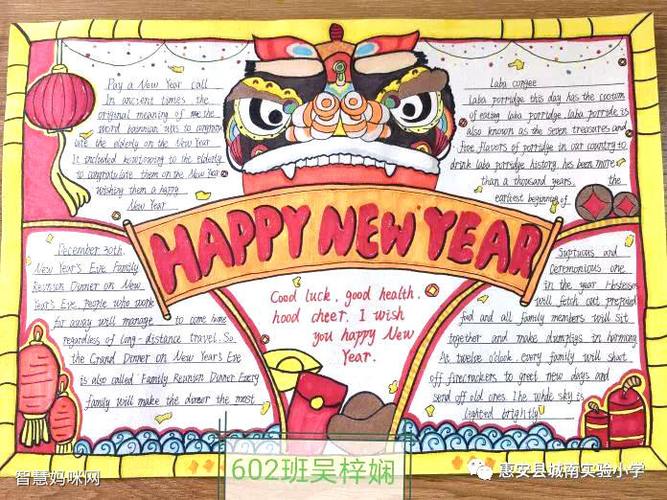 Pay a New Year call
In ancient times the
original meaning of the
word
the elderly on the New Year
It included kowtowing to the elderly
to congratulate them on the New Year
wishing them a happy
New Year
Laba congee
Laba porridge this day has the custom
of eating laba porridge laba porride is
also known as the seven treasures and
five flavors of porridge in our country to
drink laba porridge history has been more
than a thousand years. the
earliest beginning of
HAPPY NEW YEAR
December 30th,
New Year's Eve Family
Reunion Dinner on New
Year's Eve, people who work
far away will manage to come home
regardless of long-distance travel. So
the Grand Dinner on New Year's Eve
is also called Family Reunion Dinner Every
family will make the dinner the most
Good luck, good health,
hood cheer. I wish
you happy New
Year.
Suptuous and
ceremonious one
in the year Hostesses
will fetch out prepared
fod and all family members will sit
together and make dumpligs in harmong
At twelve o'clock every family will shoot
off firecrackers to greet new days and
send off old ones. The whole sky is
lighted brightly!
602班吴梓娴
智慧妈咪网
惠安县城南实验小学